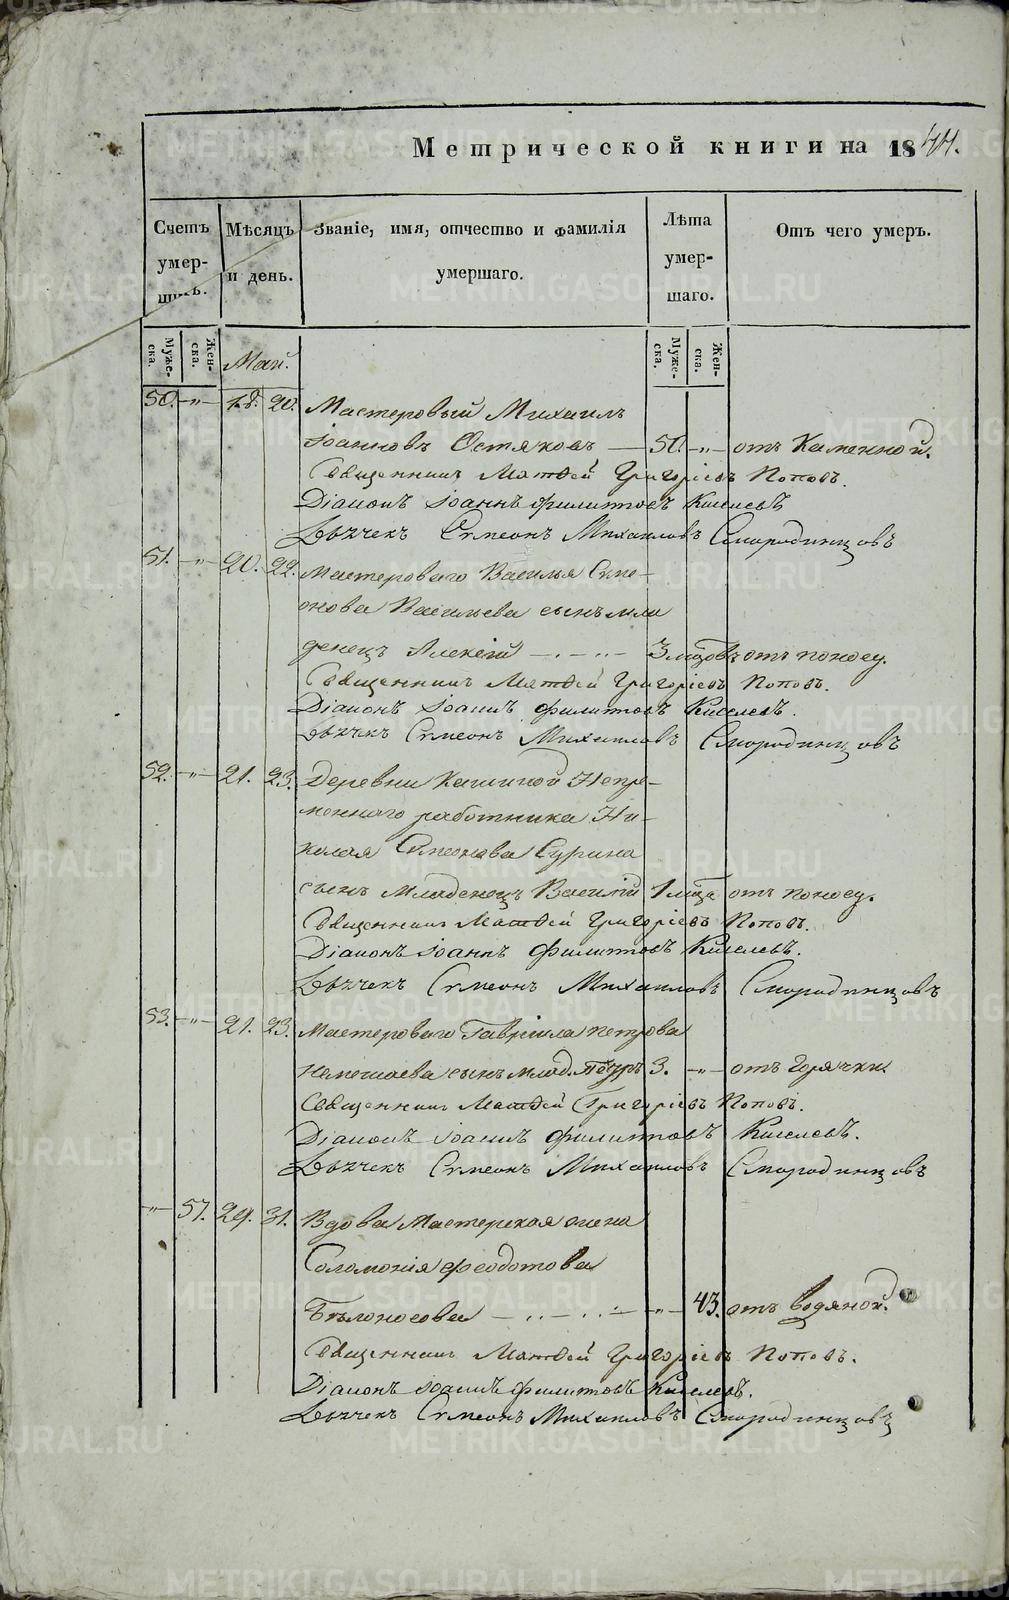 Метрической книги на 1844.
Счетъ умершихъ.
Мѣсяцъ и день.
Званіе, имя, отчество и фамилія умершаго.
Лѣта умершаго.
Отъ чего умеръ.
Муже-ска. Жен-ска. Май. Муже-ска. Жен-ска.
50. -"- 18. 20. Мастеровый Михаилъ
Іоанновъ Остяковъ — 50. -"- отъ Каменной.
Священникъ Матѳей Григоріевъ Поповъ.
Діаконъ Іоаннъ Филитовъ Киселевъ
Дьячекъ Симеонъ Михаиловъ Смородинцовъ
51. -"- 20. 22. Мастероваго Василья Симе-
онова Васильева сынъ мла
денецъ Алексій — 3 мцовъ отъ поносу.
Священникъ Матѳей Григоріевъ Поповъ.
Діаконъ Іоаннъ Филитовъ Киселевъ.
Дьячекъ Симеонъ Михаиловъ Смородинцовъ
52. -"- 21. 23. Деревни Кашиной Непре-
меннаго работника Ни-
колая Симеонова Сурина
сынъ Младенецъ Василій 1 мца отъ поносу.
Священникъ Матѳей Григоріевъ Поповъ.
Діаконъ Іоаннъ Филитовъ Киселевъ.
Дьячекъ Симеонъ Михаиловъ Смородинцовъ
53. -"- 21. 23. Мастероваго Гавріила Петрова
сынъ млад. Петръ 3. -"- отъ Горячки
Священникъ Матѳей Григоріевъ Поповъ.
Діаконъ Іоаннъ Филитовъ Киселевъ.
Дьячекъ Симеонъ Михаиловъ Смородинцовъ
-"- 57. 29. 31. Вдова Мастерская жена
Соломонія Феодотова
Бѣлоносова — -"- 43. отъ водяной.
Священникъ Матѳей Григоріевъ Поповъ.
Діаконъ Іоаннъ Филитовъ Киселевъ.
Дьячекъ Симеонъ Михаиловъ Смородинцовъ
METRIKI.GASO-URAL.RU